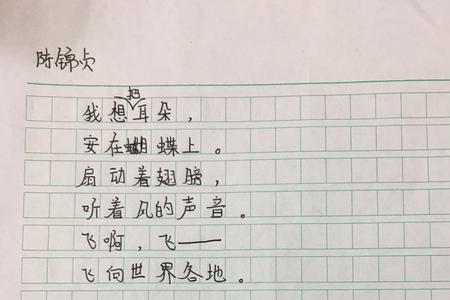 陈锦贞
我想把耳朵，
安在蝴蝶上。
扇动着翅膀，
听着风的声音。
飞啊，飞——
飞向世界各地。